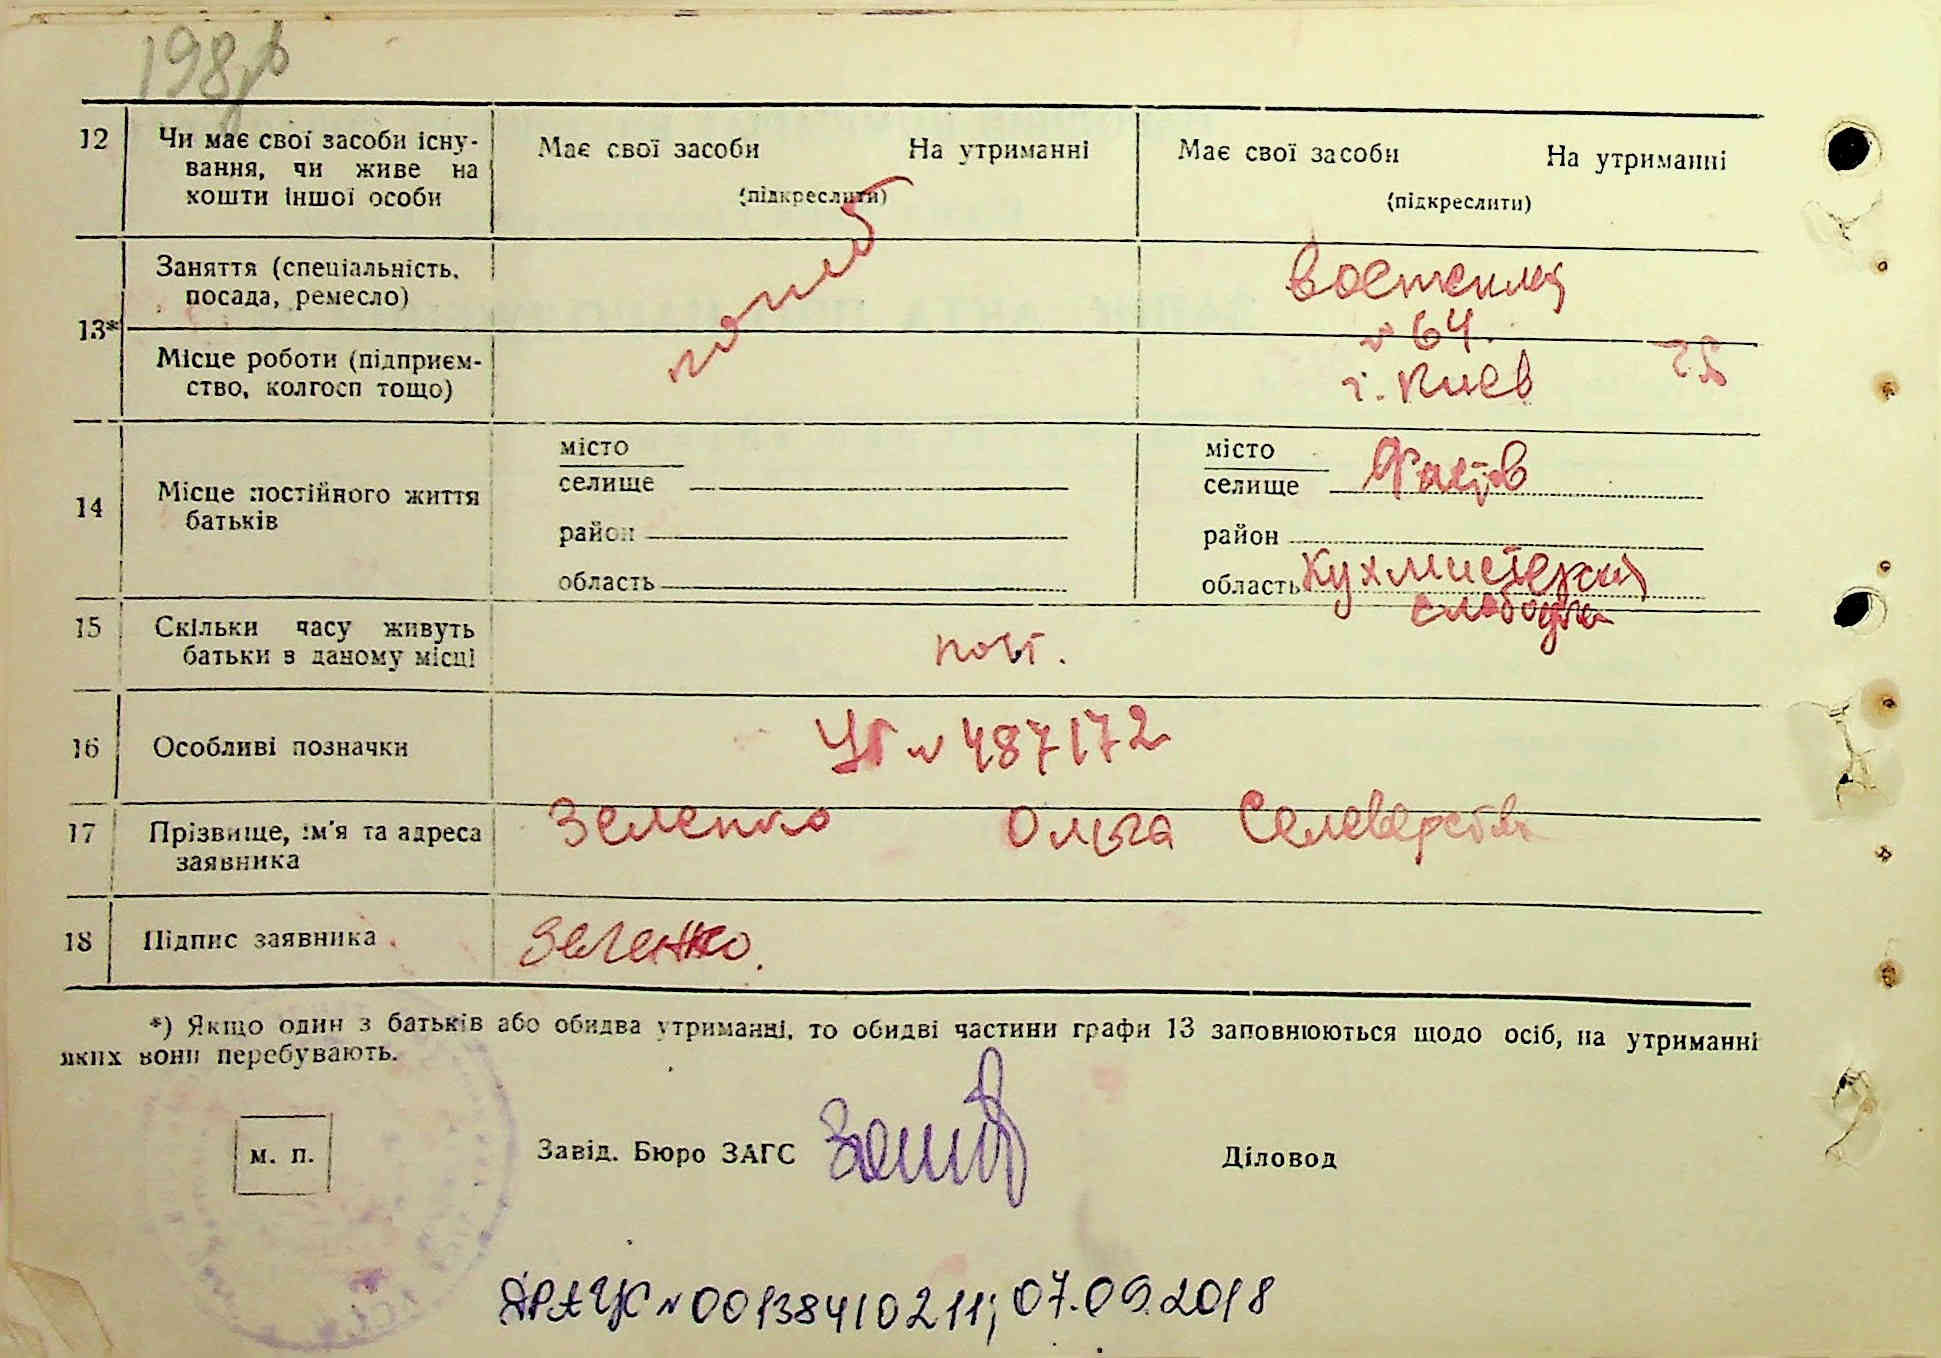 198
12 Чи має свої засоби існу-
вання, чи живе на
кошти іншої особи
Має свої засоби На утриманні
(підкреслити)
Має свої засоби На утриманні
(підкреслити)
13*
Заняття (спеціальність,
посада, ремесло)
погиб
Місце роботи (підприєм-
ство, колгосп тощо)
№ 64.
г. Киев
14 Місце постійного життя
батьків
місто
селище
район
область
місто
селище Фастов
район
область Кухмистерская
слобода
15 Скільки часу живуть
батьки в даному місці
пост.
16 Особливі позначки
№ 487172
17 Прізвище, ім'я та адреса
заявника
Зеленко Ольга
18 Підпис заявника
Зеленко.
*) Якщо один з батьків або обидва утриманні, то обидві частини графи 13 заповнюються щодо осіб, на утриманні
яких вони перебувають.
м. п.
Завід. Бюро ЗАГС
Діловод
ДРАЦС № 00138410211; 07.09.2018